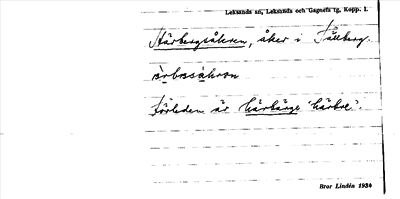 Leksands sn, Leksands och Gagnefs tg, Kopp. l.
Härbergsåkern, åker i Tällberg.
ärbəsåkron
Förleden är härbärge 'härbre'.
Bror Lindén 1934